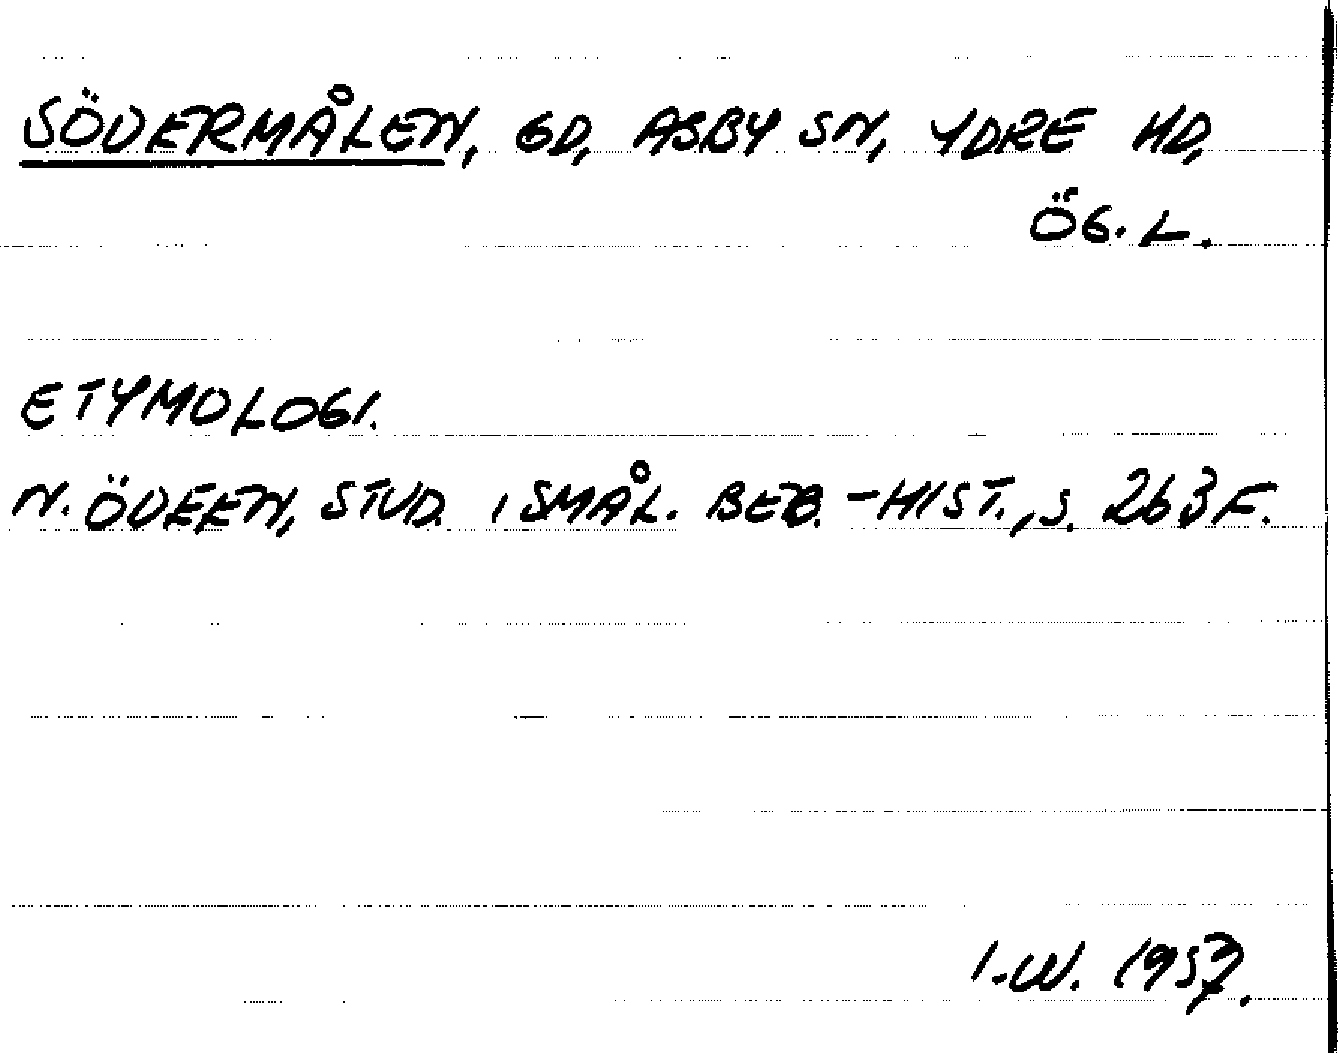 SÖDERMÅLEN, GD, ASBY SN, YDRE HD,
ÖG. L.
ETYMOLOGI.
N. ÖDEEN, STUD. I SMÅL. BEB.-HIST., S. 263 F.
I.W. 1957.